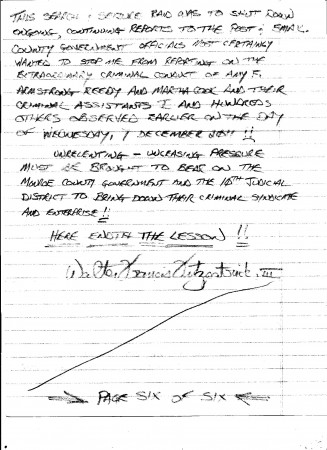 THIS SEARCH & SEIZURE RAID WAS TO SHUT DOWN
ONGOING, CONTINUING REPORTS TO THE POST & EMAIL.
COUNTY GOVERNMENT OFFICIALS MOST CERTAINLY
WANTED TO STOP ME FROM REPORTING ON THE
EXTRAORDINARY CRIMINAL CONDUCT OF AMY F.
ARMSTRONG REEDY AND MARTHA COOK AND THEIR
CRIMINAL ASSISTANTS I AND HUNDREDS
OTHERS OBSERVED EARLIER ON THE DAY
OF WEDNESDAY, 7 DECEMBER 2011 !!
UNRELENTING - UNCEASING PRESSURE
MUST BE BROUGHT TO BEAR ON THE
MONROE COUNTY GOVERNMENT AND THE 10TH JUDICIAL
DISTRICT TO BRING DOWN THEIR CRIMINAL SYNDICATE
AND ENTERPRISE !!
HERE ENDTH THE LESSON !!
Walter Francis Fitzpatrick, III
PAGE SIX OF SIX